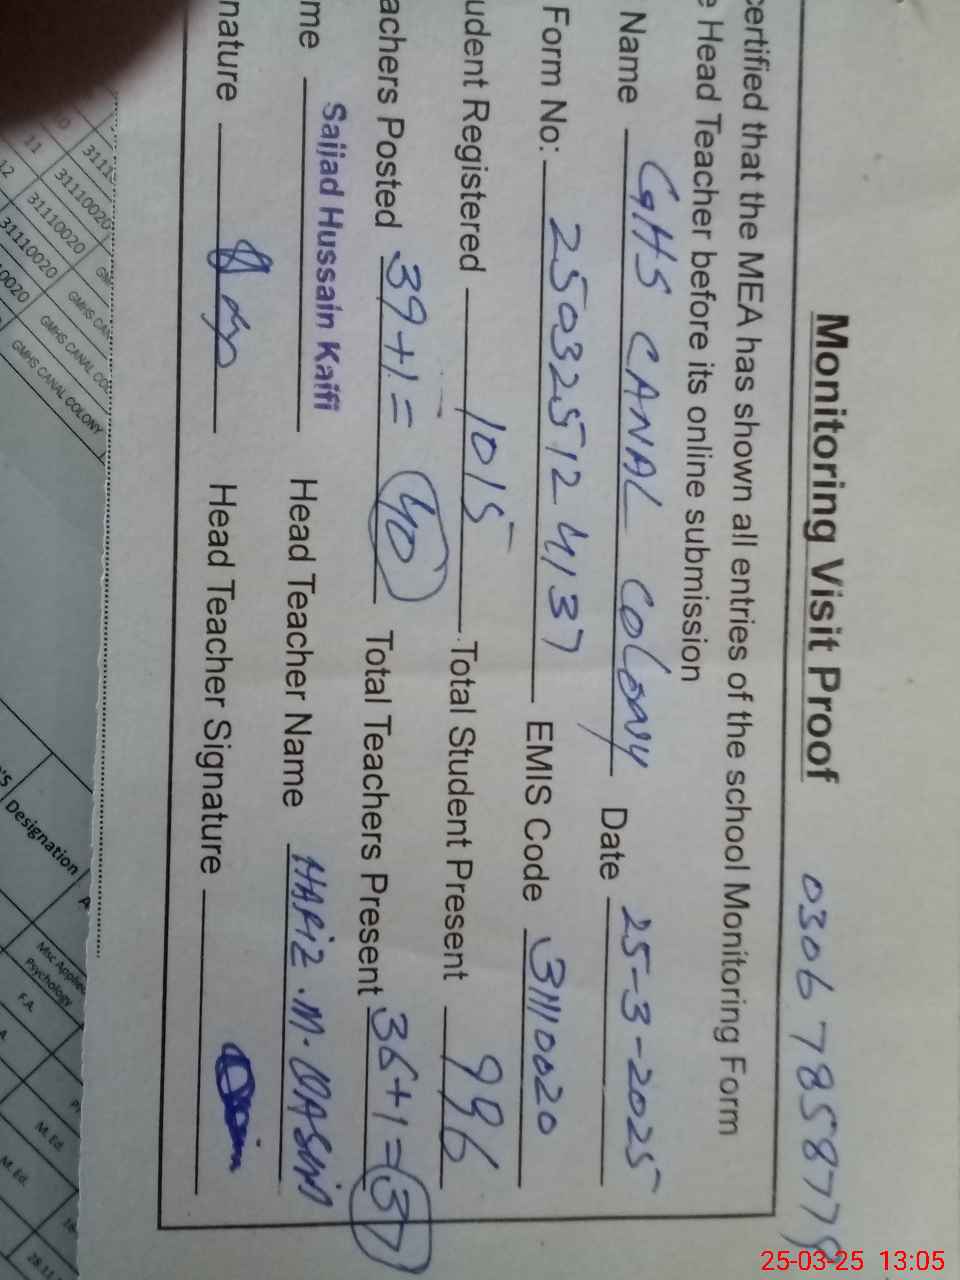 Monitoring Visit Proof 0306 7858778
certified that the MEA has shown all entries of the school Monitoring Form
e Head Teacher before its online submission
Name GHS CANAL COLONY Date 25-3-2025
Form No: 250325124137 EMIS Code 31110020
udent Registered 1015 Total Student Present 996
achers Posted 39+1= 40 Total Teachers Present 36+1=37
me Sajjad Hussain Kaifi Head Teacher Name HAFIZ.M.WASIM
nature Head Teacher Signature
10 3111
11 31110020 GM
12 31110020 GMHS CAN
31110020 GMHS CANAL COL
0020 GMHS CANAL COLONY
'S Designation A
Msc Applied
Psychology
F.A.
M. Ed
M. Ed.
28.11
25-03-25 13:05